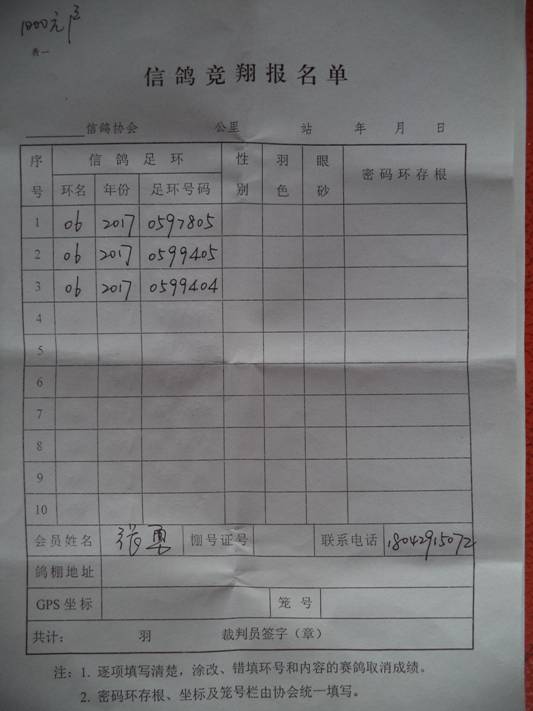 1000元
表一
信鸽竞翔报名单
________信鸽协会 公里 站 年 月 日
序号 信鸽足环 性别 羽色 眼砂 密码环存根
环名 年份 足环号码
1 06 2017 0597805
2 06 2017 0599405
3 06 2017 0599404
4
5
6
7
8
9
10
会员姓名 张勇 棚号证号 联系电话 18042915072
鸽棚地址
GPS坐标 笼号
共计： 羽 裁判员签字（章）
注：1. 逐项填写清楚，涂改、错填环号和内容的赛鸽取消成绩。
2. 密码环存根、坐标及笼号栏由协会统一填写。